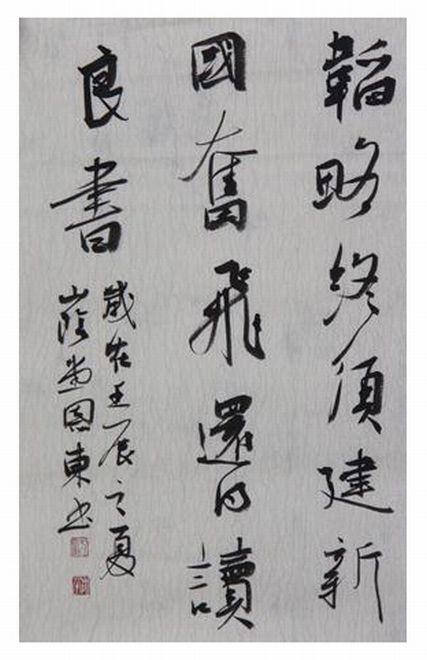 韜略終須建新
國奮飛還得讀
良書
歲在壬辰之夏
山陰東书